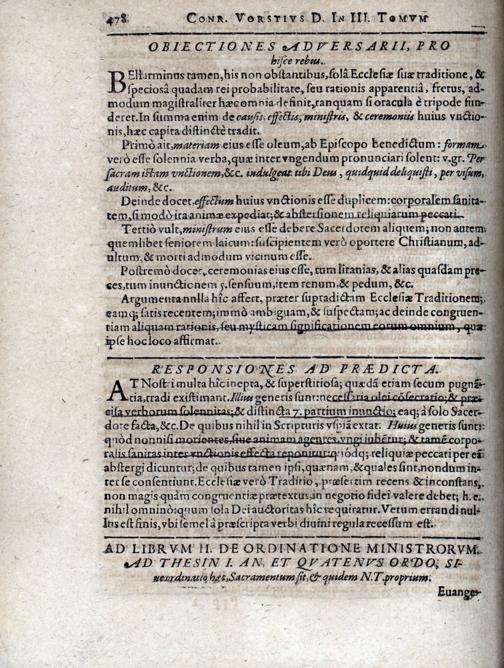 478 CONR. VORSTIVS D. IN III. TOMVM
OBIECTIONES ADVERSARII, PRO
hisce rebus.
BEllarminus tamen, his non obstantibus, solâ Ecclesiæ suæ traditione, &
speciosâ quadam rei probabilitate, seu rationis apparentiâ, fretus, ad-
modum magistraliter hæc omnia definit, tanquam si oracula è tripode fun-
deret. In summa enim de causis, effectis, ministris, & ceremoniis huius vnctio-
nis, hæc capita distinctè tradit.
Primò ait, materiam eius esse oleum, ab Episcopo benedictum: formam
verò esse solennia verba, quæ inter vngendum pronunciari solent: v.gr. Per
sacram istam vnctionem, &c. indulgeat tibi Deus, quidquid deliquisti, per visum,
auditum, &c.
Deinde docet, effectum huius vnctionis esse duplicem: corporalem sanita-
tem, si modò ita animæ expediat; & abstersionem reliquiarum peccati.
Tertiò vult, ministrum eius esse debere Sacerdotem aliquem; non autem
quemlibet seniorem laicum: suscipientem verò oportere Christianum, ad-
ultum, & morti admodum vicinum esse.
Postremò docet, ceremonias eius esse, tum litanias, & alias quasdam pre-
ces, tum inunctionem 5. sensuum, item renum, & pedum, &c.
Argumenta nulla hîc affert, præter supradictam Ecclesiæ Traditionem;
eamq; satis recentem; immò ambiguam, & suspectam; ac deinde congruen-
tiam aliquam rationis, seu mysticam significationem eorum omnium, quæ
ipse hoc loco affirmat.
RESPONSIONES AD PRÆDICTA.
AT Nostri multa hîc inepta, & superstitiosa; quædā etiam secum pugnā-
tia, tradi existimant. Illius generis sunt: necessaria olei cōsecratio; & præ-
cisa verborum solennitas; & distincta 7. partium inunctio; eaq; à solo Sacer-
dote facta, &c. De quibus nihil in Scripturis vspiā extat. Huius generis sunt:
quòd nonnisi morientes, siue animam agentes, vngi iubētur; & tamē corpo-
ralis sanitas inter vnctionis effecta reponitur: quòdq; reliquiæ peccati per eā
abstergi dicuntur; de quibus tamen ipsi, quænam, & quales sint, nondum in-
ter se consentiunt. Ecclesiæ verò Traditio, præsertim recens & inconstans,
non magis quàm congruentiæ prætextus, in negotio fidei valere debet; h. e.
nihil omnino; quum sola Dei auctoritas hîc requiratur. Verum errandi nul-
lus est finis, vbi semel à præscripta verbi diuini regula recessum est.
AD LIBRVM II. DE ORDINATIONE MINISTRORVM.
AD THESIN I. AN, ET QVATENVS ORDO, SI-
ue ordinatio hæc, Sacramentum sit, & quidem N.T. proprium.
Euange-